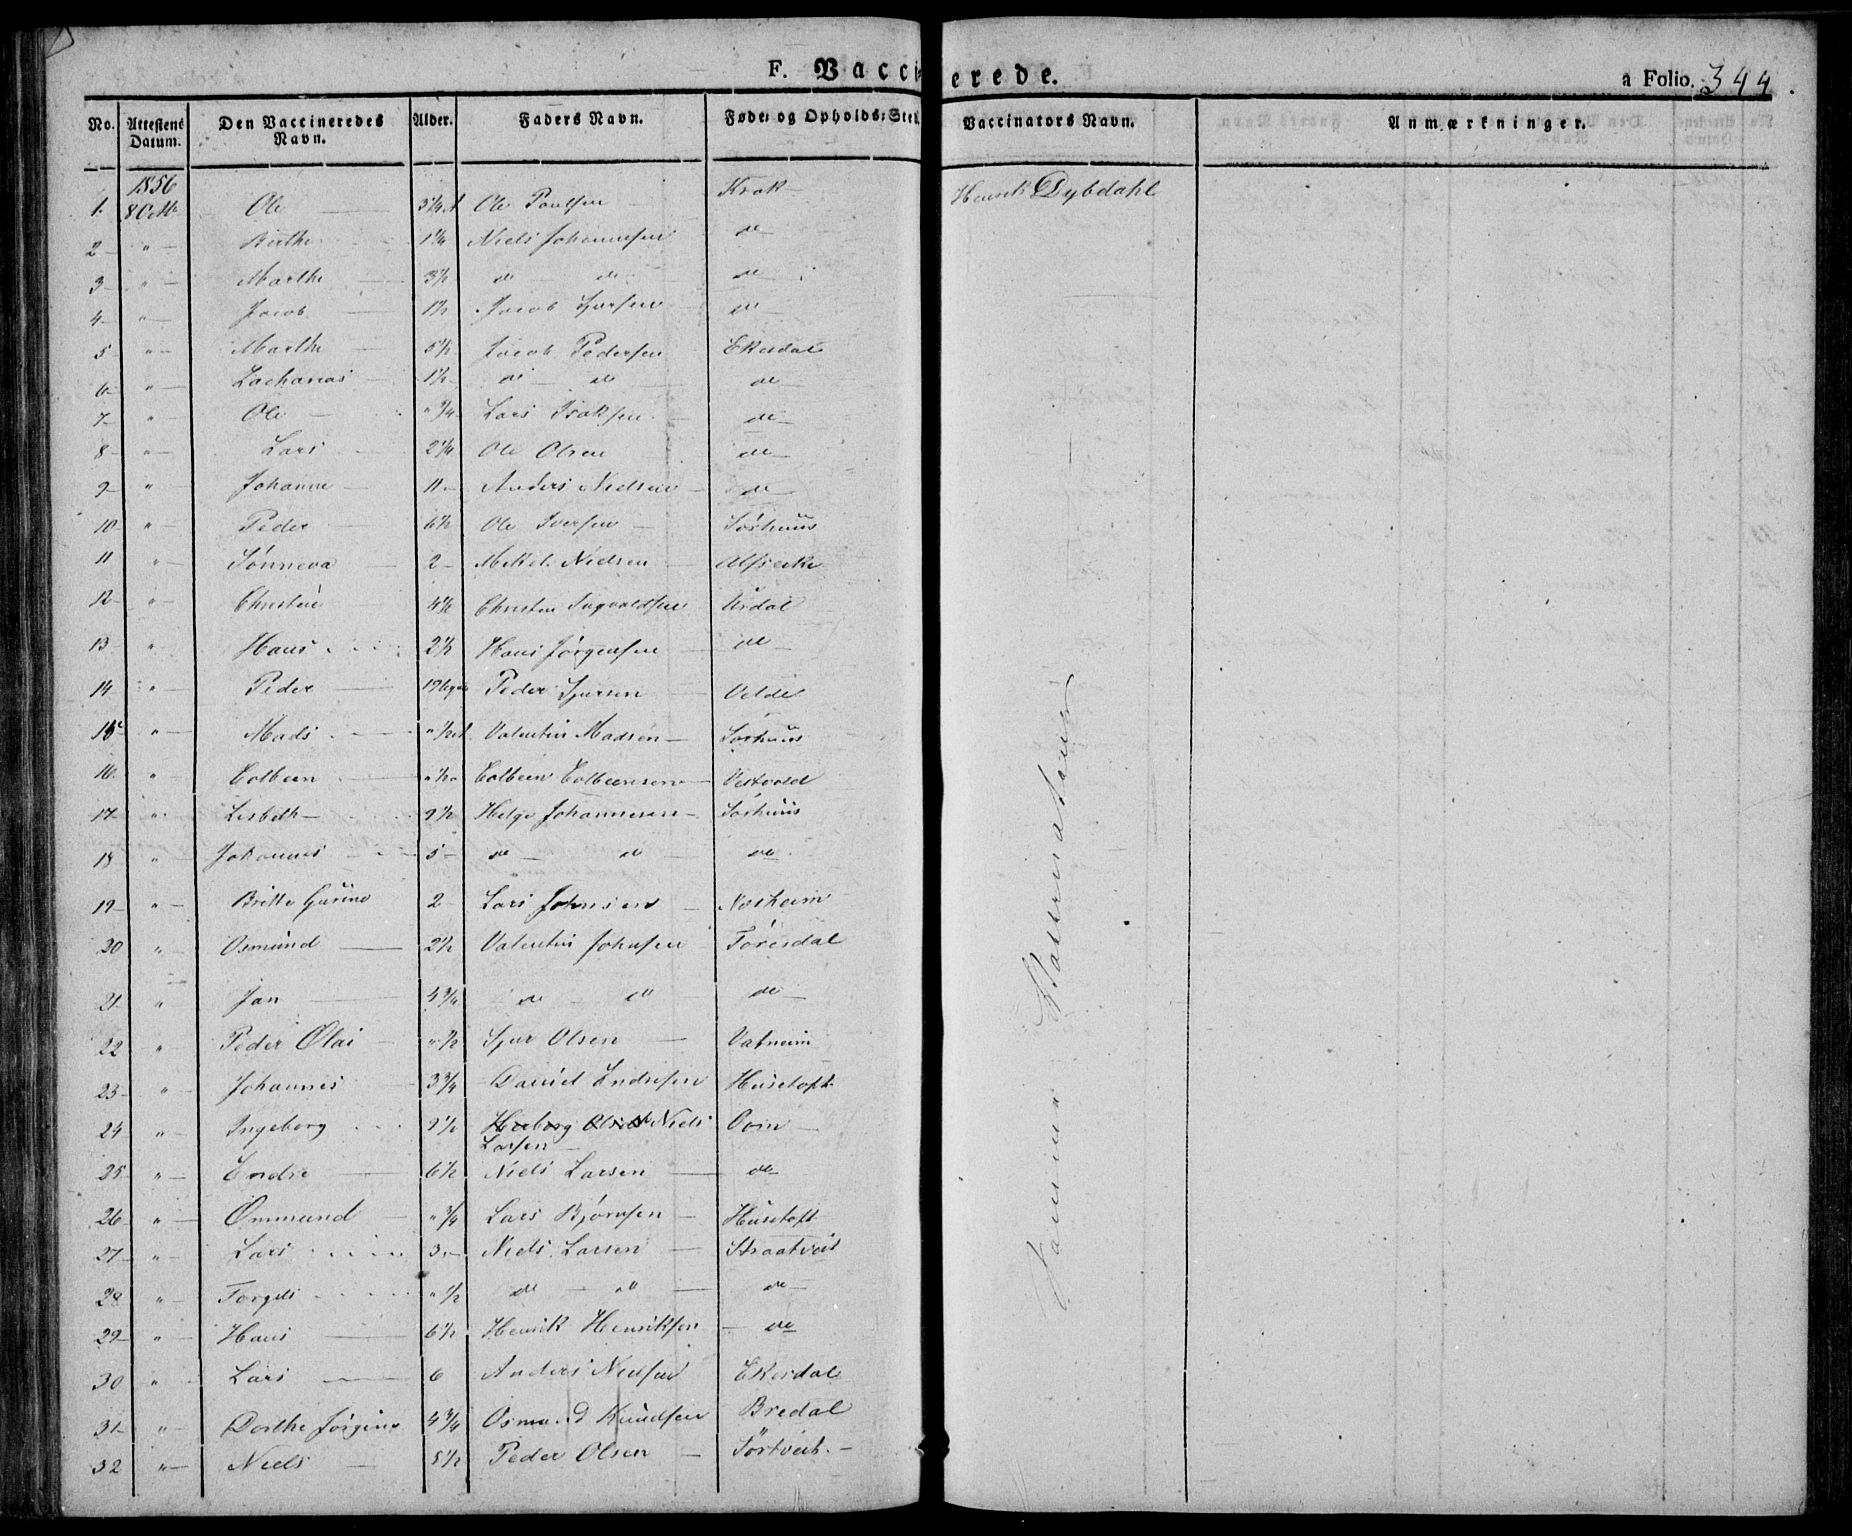 F. Vaccinerede.
a Folio. 344.
No. Attestens Datum. Den Vaccineredes Navn. Alder. Faders Navn. Føde- og Opholds-Sted Vaccinators Navn. Anmærkninger.
1856
1. 8 Octbr Ole 3 1/4 A Ole Poulsen Krok Henrik Dybdahl
2 " Berthe 1 1/4 Niels Johannesen do
3 " Marthe 3 1/2 do do do
4 " Jacob 1 1/2 Jacob Sjursen do
5 " Marthe 5 1/2 Jacob Pedersen Ekesdal
6 " Zacharias 1 1/2 do do do
7 " Ole " 3/4 Lars Isaksen do
8 " Lars 2 1/4 Ole Olsen do
9 " Johanne 11 Anders Nielsen do
10 " Peder 6 1/2 Ole Iversen Sørhuus
11 " Sønneva 2 Mikel Nielsen
12 " Christen 4 1/2 Christen Ingvaldsen Urdal
13 " Hans 2 1/2 Hans Jørgensen do
14 " Peder Peder Sjursen Velde
15 " Mads " 1/2 A Valentin Madsen Sørhuus
16 " Colbeen " 1/2 Colbeen Colbeensen Vestvold
17 " Lisbeth 9 1/2 Helge Johannesen Sørhuus
18 " Johannes 5 do do do
19 " Britte Gurine 2 Lars Johnsen Norheim
20 " Osmund 2 1/2 Valentin JohnsenFøresdal
21 " Jan 4 3/4 do do do
22 " Peder Olai " 1/2 Sjur Olsen Vatneim
23 " Johannes 3 3/4 Daniel Endresen Husetoft
24 " Ingeborg 9 1/2 Niels Larsen
25 " Endre 6 1/2 Niels Larsen do
26 " Ommund " 3/4 Lars Bjørnsen Husetoft
27 " Lars 3 Niels Larsen Straatveit
28 " Torgils " 1/2 do do do
29 " Hans 6 1/2 Henrik Henriksen do
30 " Lars 6 Anders Nielsen Ekesdal
31 " Dorthe Jørgine 4 3/4 Osmund Knudsen Bredal
32 " Niels 5 1/2 Peder Olsen Førtveit